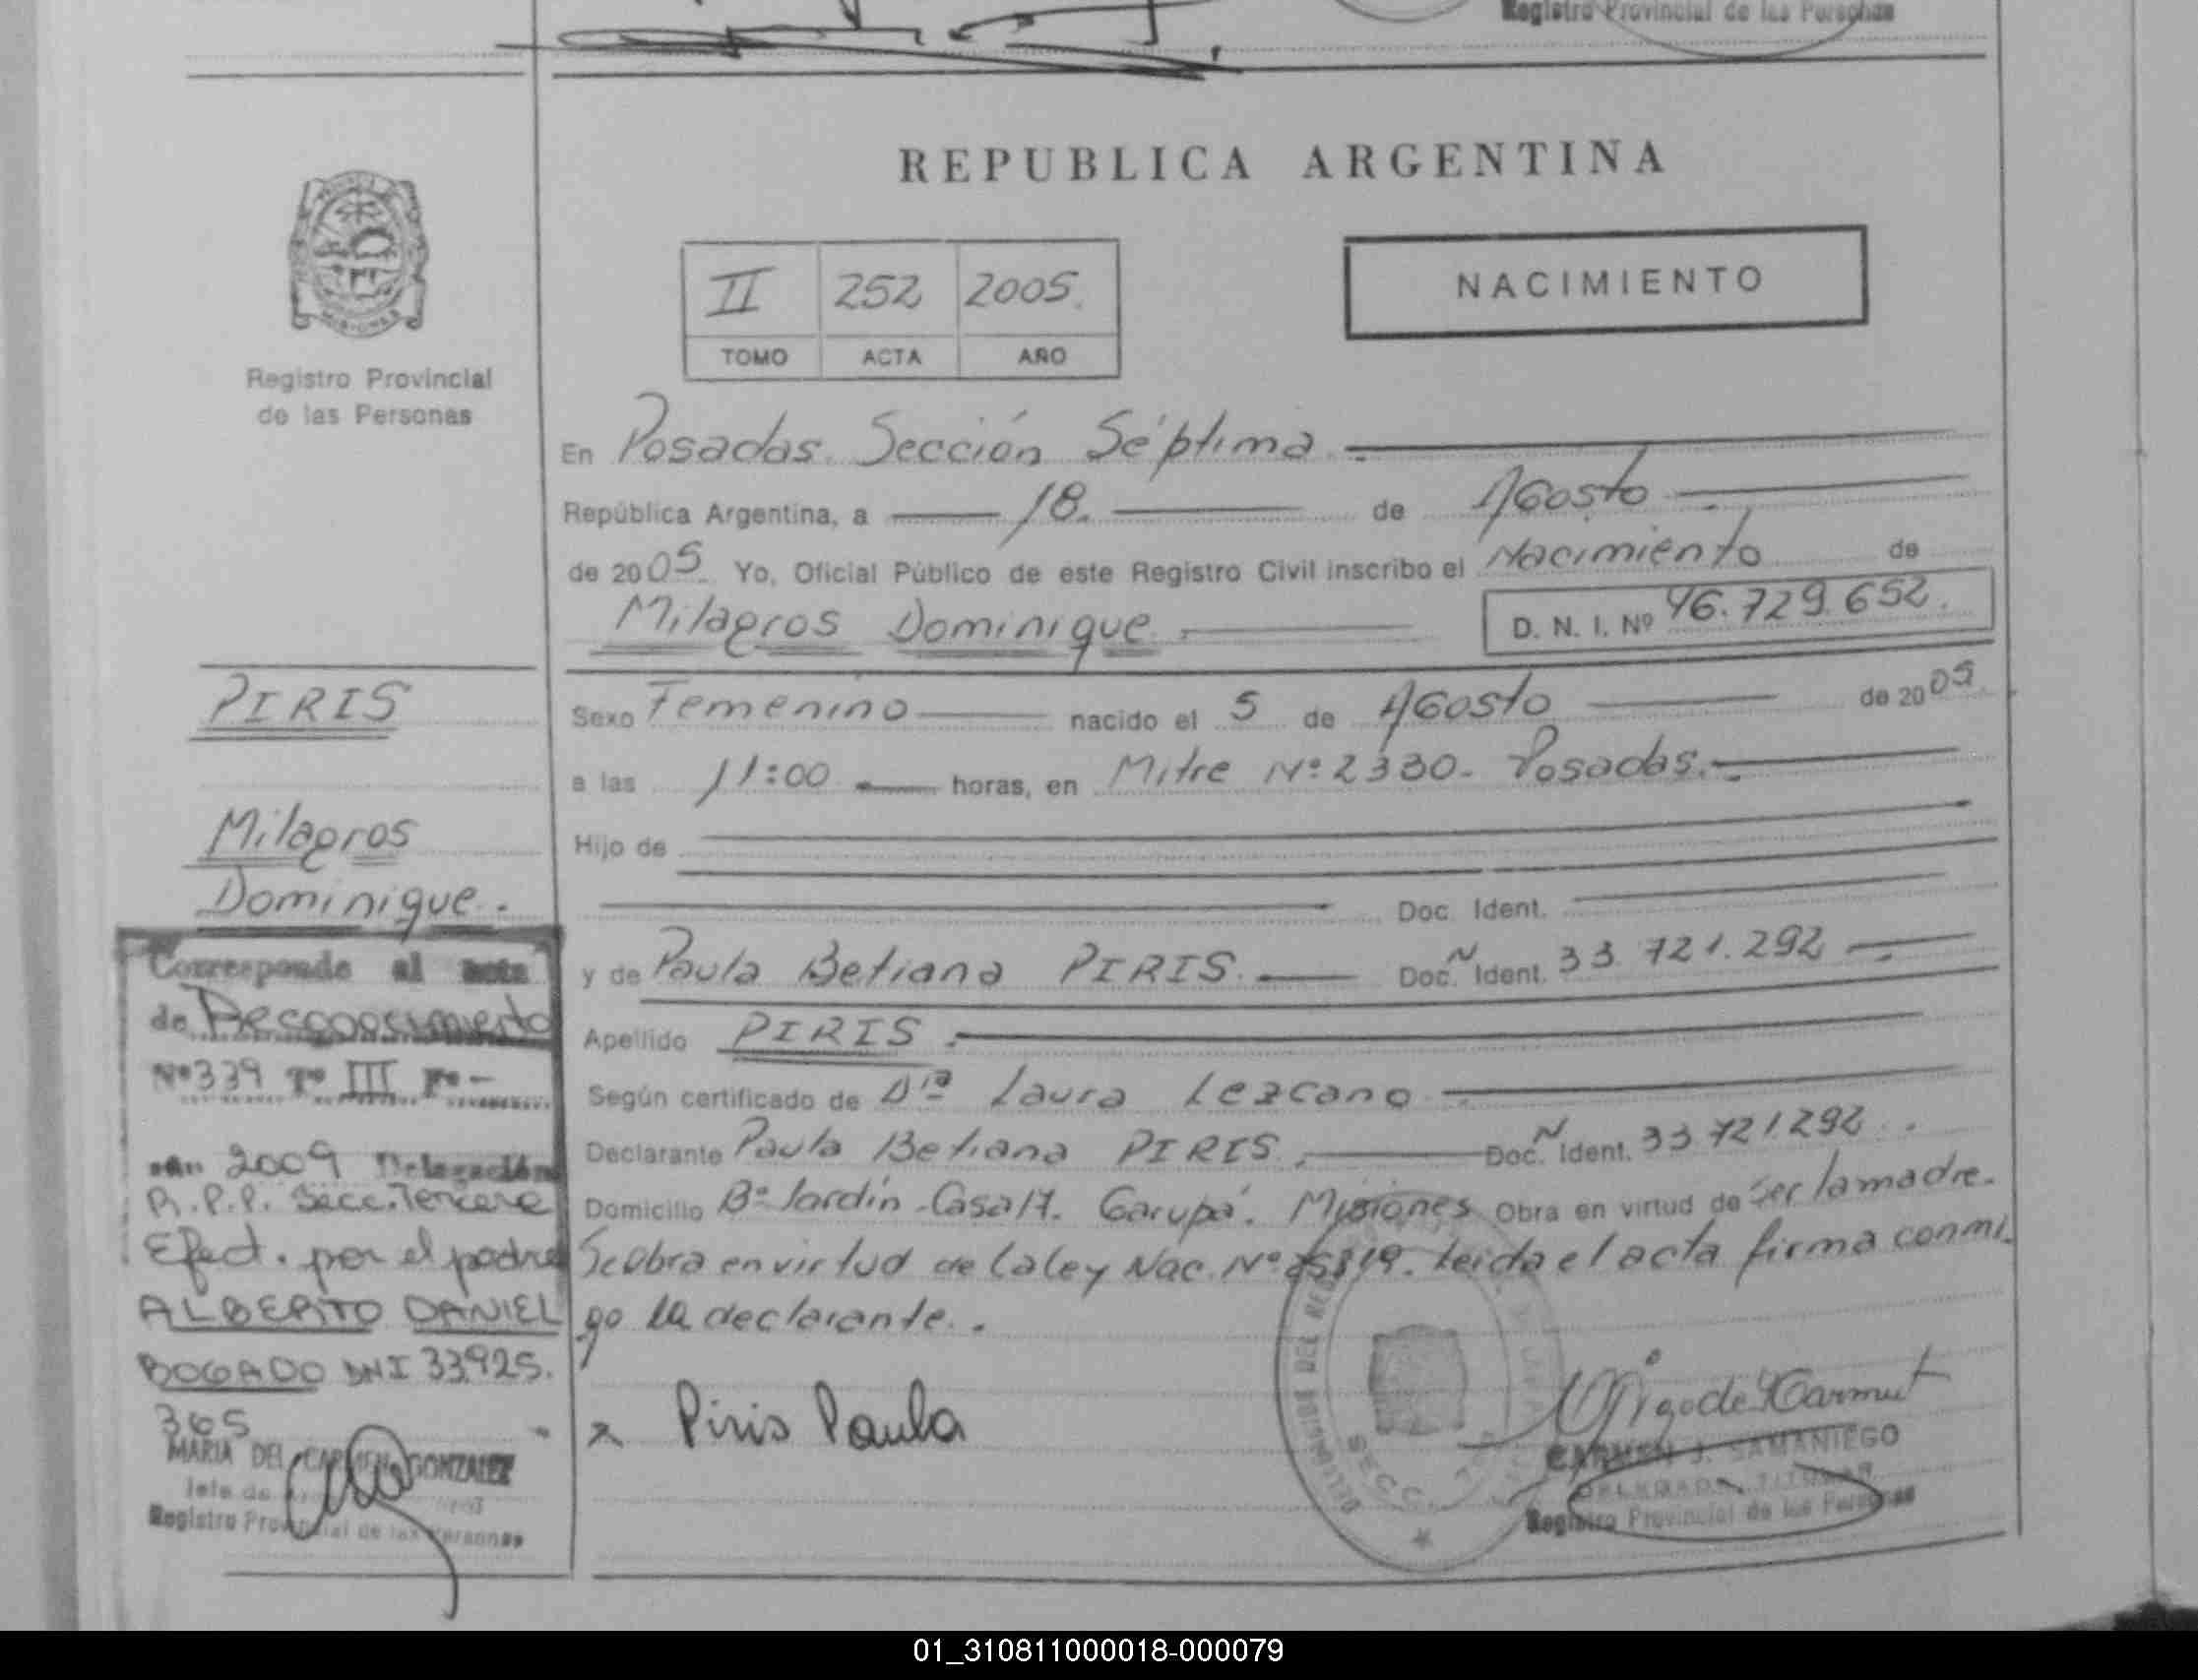 Registro Provincial de las Personas
REPUBLICA ARGENTINA
II 252 2005.
TOMO ACTA AÑO
NACIMIENTO
MISIONES
Registro Provincial
de las Personas
En Posadas. Sección Séptima.
República Argentina, a 18. de Agosto
de 2005. Yo, Oficial Público de este Registro Civil inscribo el Nacimiento de
Milagros Dominique. D. N. I. Nº 46.729.652.
PIRIS
Milagros
Dominique.
Sexo Femenino nacido el 5 de Agosto de 2005
a las 11:00 horas, en Mitre Nº 2330. Posadas.
Hijo de
Doc. Ident.
y de Paula Betiana PIRIS. Doc. N Ident. 33.721.292
Apellido PIRIS.
Según certificado de Drª Laura Lezcano
Declarante Paula Betiana PIRIS. Doc. N Ident. 33.721.292.
Domicilio Bº Jardín - Casa 17. Garupá. Misiones Obra en virtud de ser la madre.
Se obra en virtud de la ley Nac. Nº 25819. Leida el acta firma conmi-
go la declarante.
x Piris Paula
CARMEN J. SAMANIEGO
DELEGADA TITULAR
Registro Provincial de las Personas
Corresponde al acta
de Reconocimiento
Nº 339 Tº III Fº -
año 2009 Delegación
R.P.P. Secc. Tercera
Efect. por el padre
ALBERTO DANIEL
BOGADO DNI 33.925.
365
MARIA DEL CARMEN GONZALEZ
Jefe de
Registro Provincial de las Personas
01_310811000018-000079